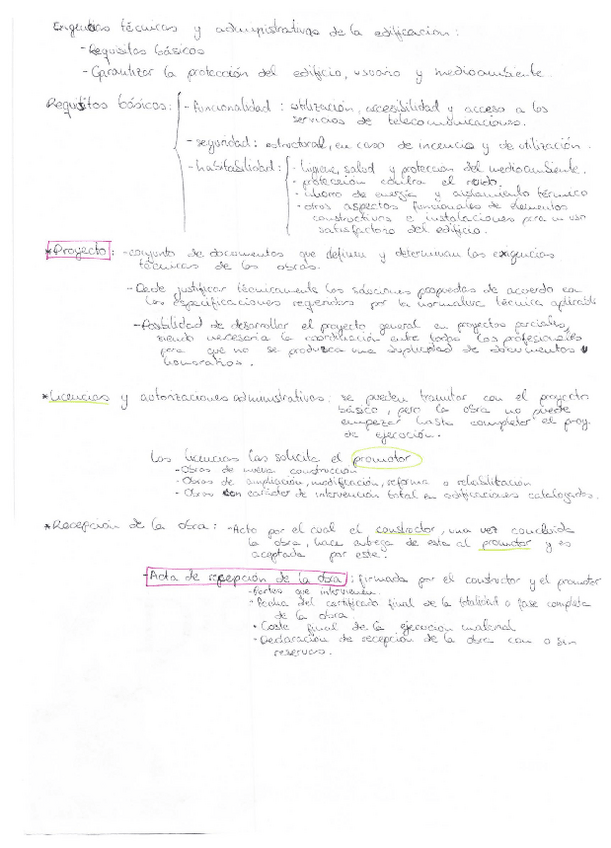 Exigencias técnicas y administrativas de la edificación:
- Requisitos básicos
- Garantizar la protección del edificio, usuario y medioambiente.
Requisitos básicos: - funcionalidad: utilización, accesibilidad y acceso a los
servicios de telecomunicaciones.
- seguridad: estructural, en caso de incencio y de utilización.
- habitabilidad: - higiene, salud y protección del medioambiente.
- protección contra el ruido.
- ahorro de energía y aislamiento térmico
- otros aspectos funcionales de elementos
constructivos e instalaciones para un uso
satisfactorio del edificio.
*Proyecto: - conjunto de documentos que definen y determinan las exigencias
técnicas de las obras.
- Debe justificar técnicamente las soluciones propuestas de acuerdo con
las especificaciones requeridas por la normativa técnica aplicable
- Posibilidad de desarrollar el proyecto general en proyectos parciales,
siendo necesaria la coordinación entre todos los profesionales
para que no se produzca una duplicidad de documentos u
honorarios.
*Licencias y autorizaciones administrativas: se pueden tramitar con el proyecto
básico, pero la obra no puede
empezar hasta completar el proy.
de ejecución.
Las licencias las solicita el promotor
- Obras de nueva construcción
- Obras de ampliación, modificación, reforma o rehabilitación
- Obras con carácter de intervención total en edificaciones catalogadas.
*Recepción de la obra: - Acto por el cual el constructor, una vez concluida
la obra, hace entrega de esta al promotor y es
aceptada por este.
- Acta de recepción de la obra: firmada por el constructor y el promotor
- Partes que intervienen.
- Fecha del certificado final de la totalidad o fase completa
de la obra
- Coste final de la ejecución material
- Declaración de recepción de la obra con o sin
reservas.